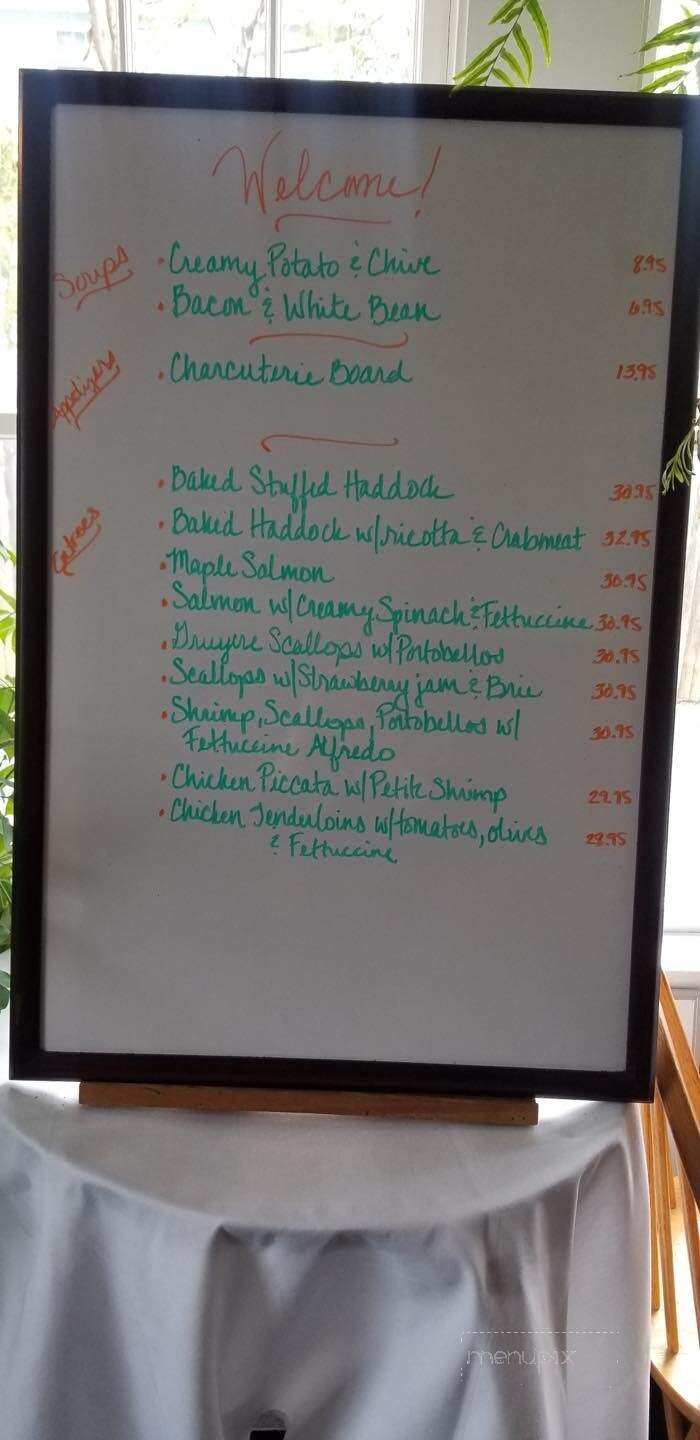 Welcome!
Soups
• Creamy Potato & Chive 8.95
• Bacon & White Bean 6.95
Appetizers
• Charcuterie Board 13.95
Entrees
• Baked Stuffed Haddock 30.95
• Baked Haddock w/ricotta & Crabmeat 32.95
• Maple Salmon 30.95
• Salmon w/Creamy Spinach & Fettuccine 30.95
• Gruyere Scallops w/Portobellos 30.95
• Scallops w/Strawberry jam & Brie 30.95
• Shrimp, Scallops, Portobellos w/ 30.95
Fettuccine Alfredo
• Chicken Piccata w/Petite Shrimp 29.95
• Chicken Tenderloins w/tomatoes, olives 28.95
& Fettuccine
menupix